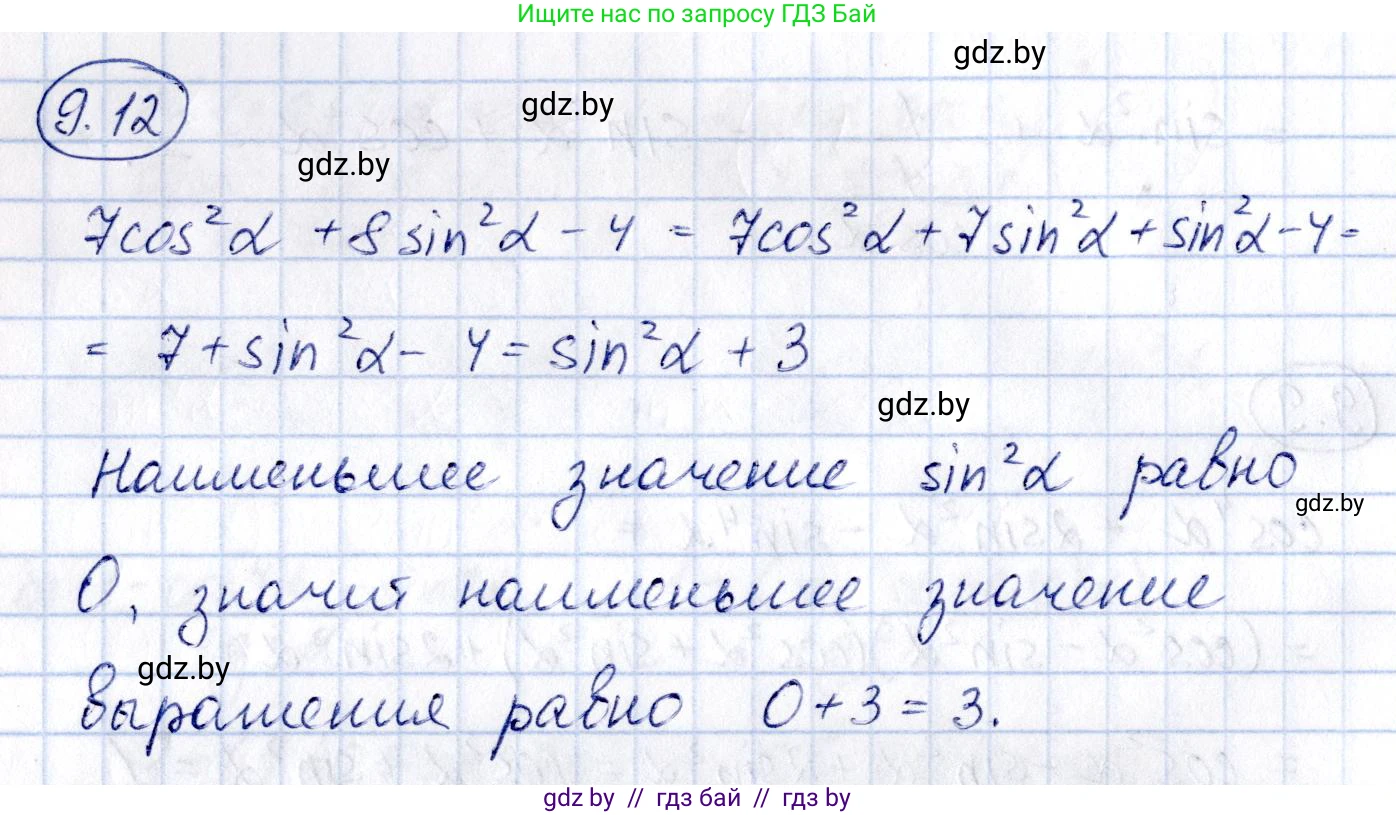 Ищите нас по запросу ГДЗ Бай
gdz.by
gdz.by
9.12
gdz.by
7cos²α + 8sin²α - 4 = 7cos²α + 7sin²α + sin²α - 4 =
= 7 + sin²α - 4 = sin²α + 3
gdz.by
Наименьшее значение sin²α равно
gdz.by
0, значит наименьшее значение
gdz.by
выражения равно 0 + 3 = 3.
gdz by // гдз бай // гдз by